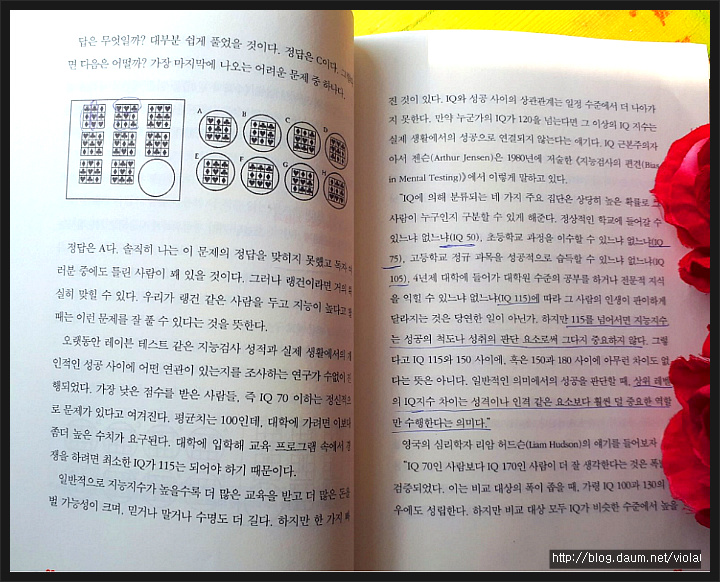 답은 무엇일까? 대부분 쉽게 풀었을 것이다. 정답은 C이다.
면 다음은 어떨까? 가장 마지막에 나오는 어려운 문제 중 하나다.
A
B
C
D
E
F
G
H
정답은 A다. 솔직히 나는 이 문제의 정답을 맞히지 못했고 독자
러분 중에도 틀린 사람이 꽤 있을 것이다. 그러나 랭건이라면 거의
실히 맞힐 수 있다. 우리가 랭건 같은 사람을 두고 지능이 높다고 할
때는 이런 문제를 잘 풀 수 있다는 것을 뜻한다.
오랫동안 레이븐 테스트 같은 지능검사 성적과 실제 생활에서의
인적인 성공 사이에 어떤 연관이 있는지를 조사하는 연구가 수없이
행되었다. 가장 낮은 점수를 받은 사람들, 즉 IQ 70 이하는 정신적으
로 문제가 있다고 여겨진다. 평균치는 100인데, 대학에 가려면 이보다
좀더 높은 수치가 요구된다. 대학에 입학해 교육 프로그램 속에서 경
쟁을 하려면 최소한 IQ가 115는 되어야 하기 때문이다.
일반적으로 지능지수가 높을수록 더 많은 교육을 받고 더 많은 돈을
벌 가능성이 크며, 믿거나 말거나 수명도 더 길다. 하지만 한 가지
견 것이 있다. IQ와 성공 사이의 상관관계는 일정 수준에서 더 나아가
지 못한다. 만약 누군가의 IQ가 120을 넘는다면 그 이상의 IQ 지수는
실제 생활에서의 성공으로 연결되지 않는다는 얘기다. IQ 근본주의자
아서 젠슨(Arthur Jensen)은 1980년에 저술한 《지능검사의 편견(Bias
in Mental Testing)》에서 이렇게 말하고 있다.
"IQ에 의해 분류되는 네 가지 주요 집단은 상당히 높은 확률로
사람이 누구인지 구분할 수 있게 해준다. 정상적인 학교에 들어갈 수
있느냐 없느냐(IQ 50), 초등학교 과정을 이수할 수 있느냐 없느냐(IQ
75), 고등학교 정규 과목을 성공적으로 습득할 수 있느냐 없느냐(IQ
105), 4년제 대학에 들어가 대학원 수준의 공부를 하거나 전문적 지식
을 익힐 수 있느냐 없느냐(IQ 115)에 따라 그 사람의 인생이 판이하게
달라지는 것은 당연한 일이 아닌가. 하지만 115를 넘어서면 지능지수
는 성공의 척도나 성취의 판단 요소로써 그다지 중요하지 않다. 그렇
다고 IQ 115와 150 사이에, 혹은 150과 180 사이에 아무런 차이도 없
다는 뜻은 아니다. 일반적인 의미에서의 성공을 판단할 때, 상위 레벨
의 IQ지수 차이는 성격이나 인격 같은 요소보다 훨씬 덜 중요한 역할
만 수행한다는 의미다."
영국의 심리학자 리암 허드슨(Liam Hudson)의 얘기를 들어보자
"IQ 70인 사람보다 IQ 170인 사람이 더 잘 생각한다는 것은
검증되었다. 이는 비교 대상의 폭이 좁을 때, 가령 IQ 100과 130의
우에도 성립한다. 하지만 비교 대상 모두 IQ가 비슷한 수준에서
http://blog.daum.net/violal